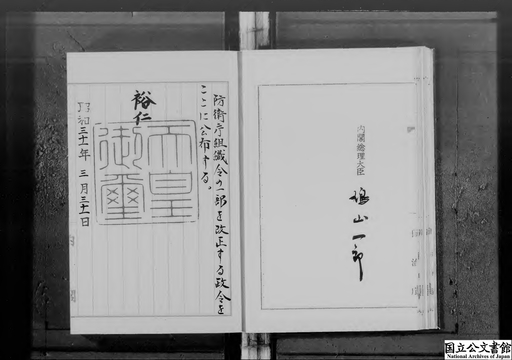 内閣総理大臣
鳩山一郎
防衛庁組織令の一部を改正する政令を
ここに公布する。
裕仁
天皇
御璽
昭和三十一年三月三十一日
国立公文書館
National Archives of Japan